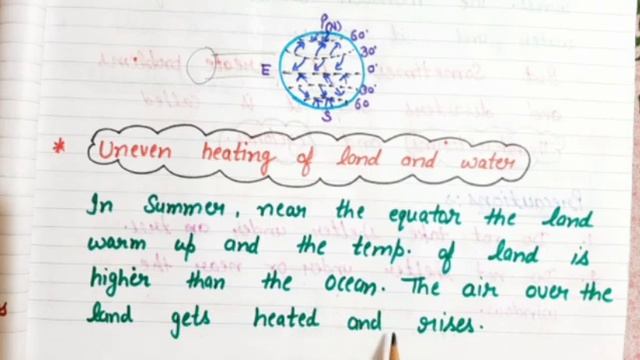 P(N)
60°
30°
E
0°
30°
60
S
* Uneven heating of land and water
In Summer, near the equator the land
warm up and the temp. of land is
higher than the ocean. The air over the
land gets heated and rises.